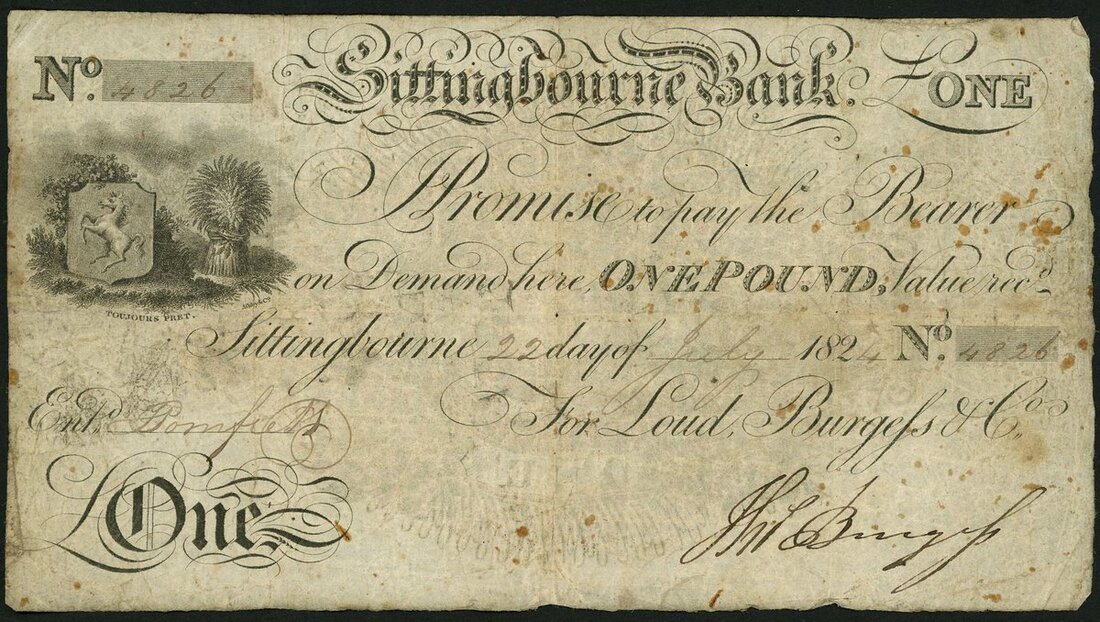 No. 4826
Sittingbourne Bank. £ONE
I Promise to pay the Bearer
on Demand here, ONE POUND, Value recd.
TOUJOURS PRET.
Sittingbourne 22 day of July 1824 No. 4826
Entd. Bomfield
For Loud, Burgeſs & Co.
£One.
Burgeſs